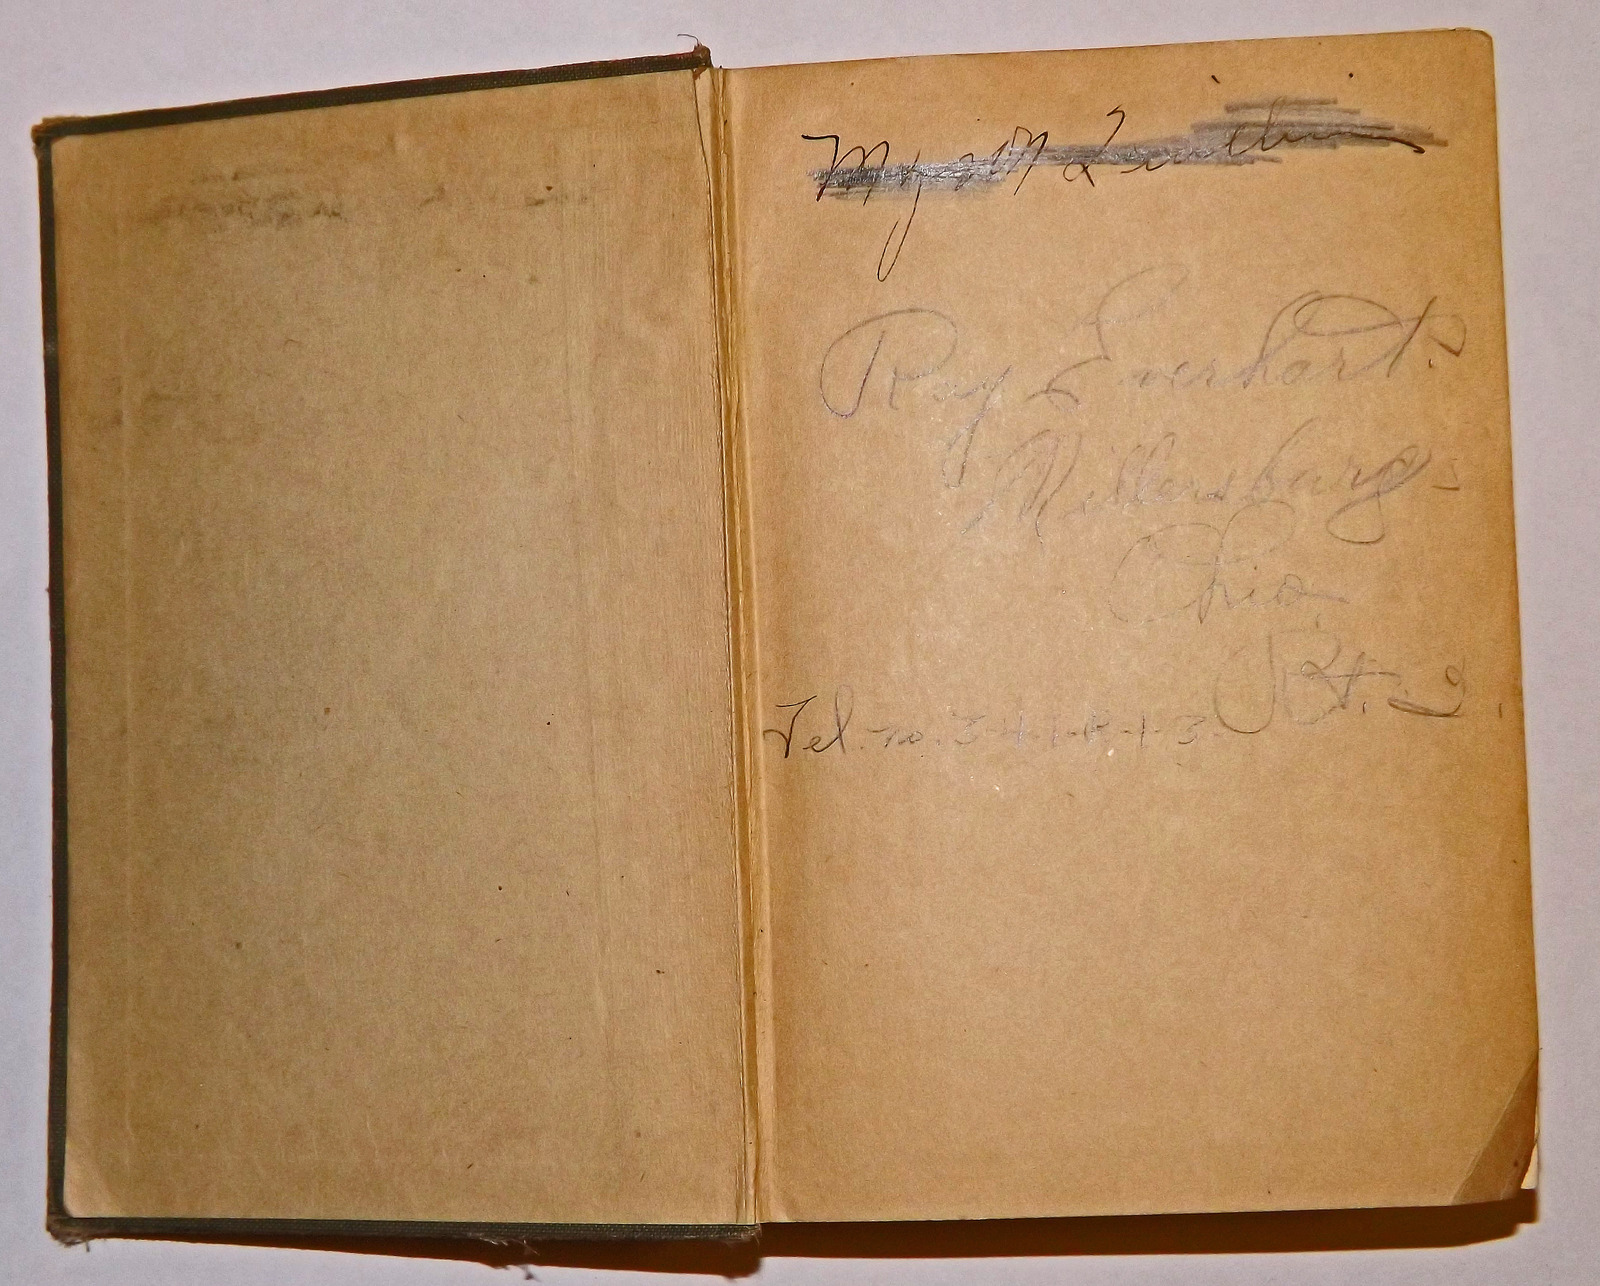 Ray Everhart.
Millersburg.
Ohio,
Rt. 2.
Tel. no. 3-4-1-R-1-3.